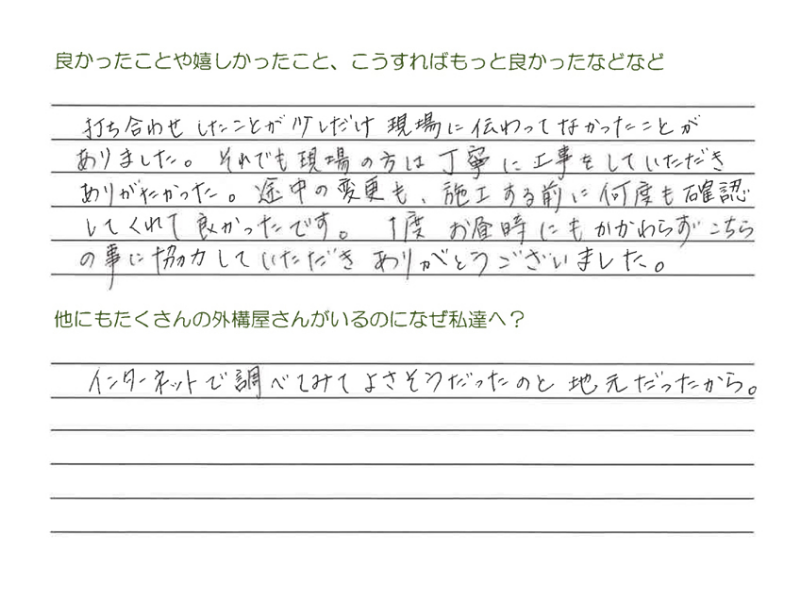 良かったことや嬉しかったこと、こうすればもっと良かったなどなど
打ち合わせしたことが少しだけ現場に伝わってなかったことが
ありました。それでも現場の方は丁寧に工事をしていただき
ありがたかった。途中の変更も、施工する前に何度も確認
してくれて良かったです。1度お昼時にもかかわらずこちら
の事に協力していただきありがとうございました。
他にもたくさんの外構屋さんがいるのになぜ私達へ？
インターネットで調べてみてよさそうだったのと地元だったから。